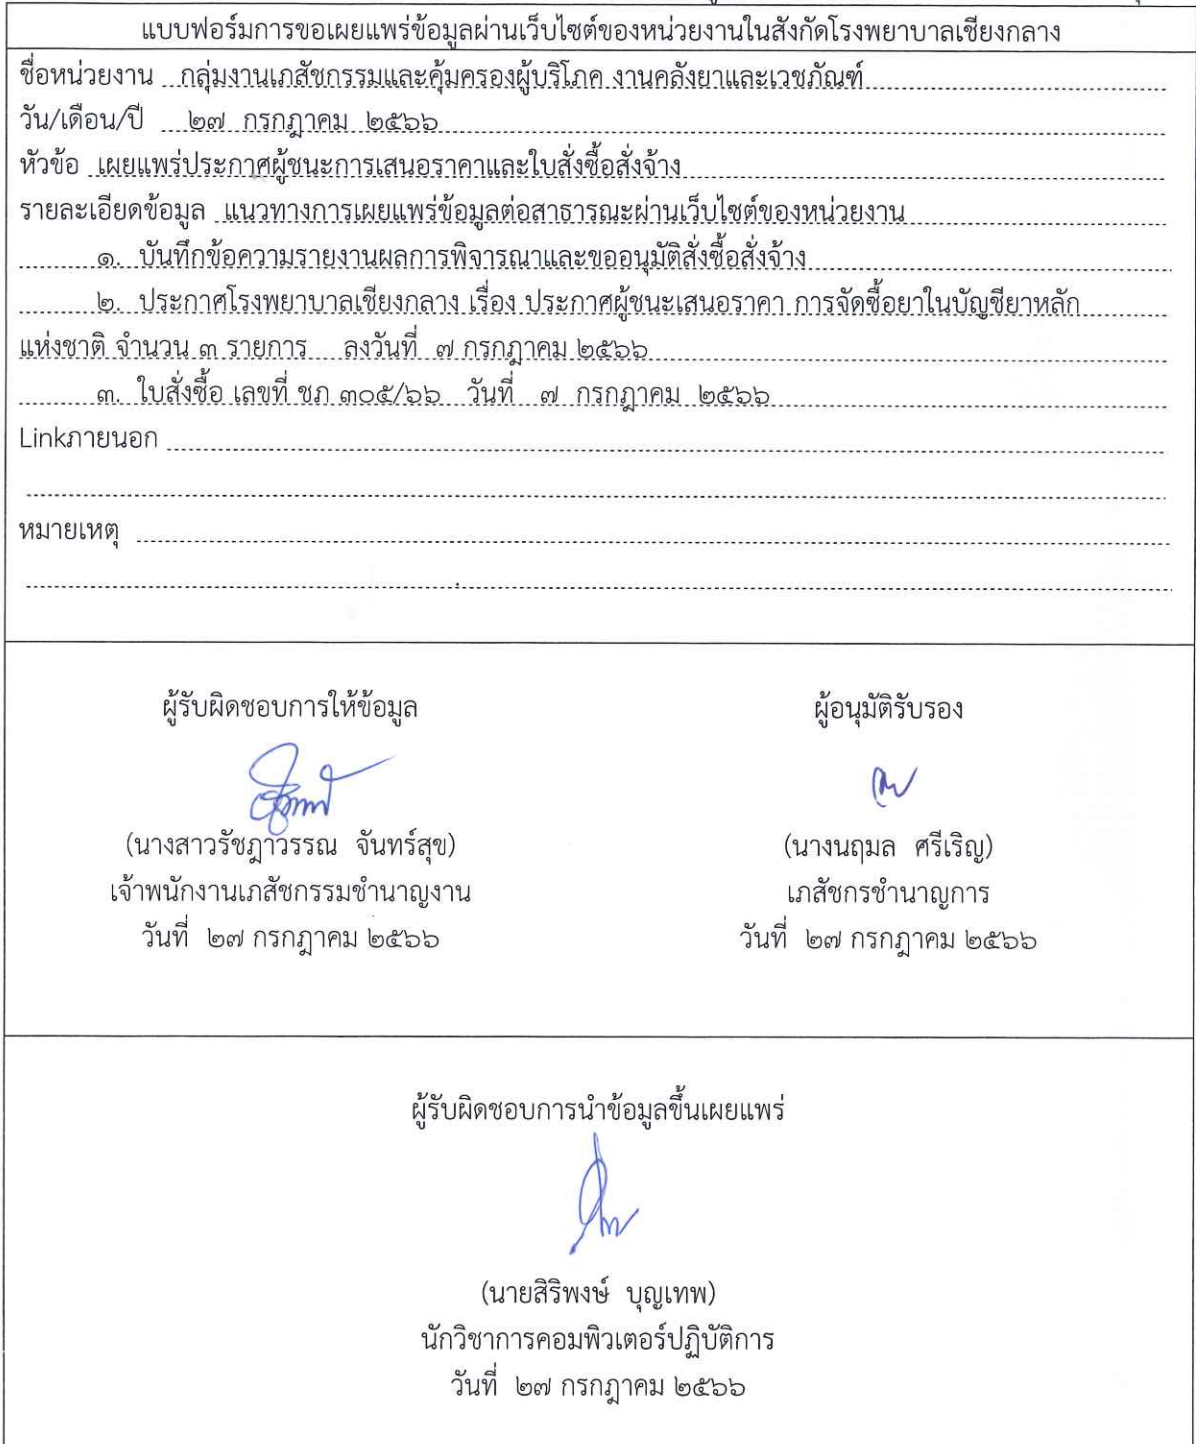 แบบฟอร์มการขอเผยแพร่ข้อมูลผ่านเว็บไซต์ของหน่วยงานในสังกัดโรงพยาบาลเชียงกลาง
ชื่อหน่วยงาน กลุ่มงานเภสัชกรรมและคุ้มครองผู้บริโภค งานคลังยาและเวชภัณฑ์
วัน/เดือน/ปี ๒๗ กรกฎาคม ๒๕๖๖
หัวข้อ เผยแพร่ประกาศผู้ชนะการเสนอราคาและใบสั่งซื้อสั่งจ้าง
รายละเอียดข้อมูล แนวทางการเผยแพร่ข้อมูลต่อสาธารณะผ่านเว็บไซต์ของหน่วยงาน
๑. บันทึกข้อความรายงานผลการพิจารณาและขออนุมัติสั่งซื้อสั่งจ้าง
๒. ประกาศโรงพยาบาลเชียงกลาง เรื่อง ประกาศผู้ชนะเสนอราคา การจัดซื้อยาในบัญชียาหลัก
แห่งชาติ จำนวน ๓ รายการ ลงวันที่ ๗ กรกฎาคม ๒๕๖๖
๓. ใบสั่งซื้อ เลขที่ ชภ ๓๐๕/๖๖ วันที่ ๗ กรกฎาคม ๒๕๖๖
Linkภายนอก
หมายเหตุ
ผู้รับผิดชอบการให้ข้อมูล
(นางสาวรัชฎาวรรณ จันทร์สุข)
เจ้าพนักงานเภสัชกรรมชำนาญงาน
วันที่ ๒๗ กรกฎาคม ๒๕๖๖
ผู้อนุมัติรับรอง
(นางนฤมล ศรีเริญ)
เภสัชกรชำนาญการ
วันที่ ๒๗ กรกฎาคม ๒๕๖๖
ผู้รับผิดชอบการนำข้อมูลขึ้นเผยแพร่
(นายสิริพงษ์ บุญเทพ)
นักวิชาการคอมพิวเตอร์ปฏิบัติการ
วันที่ ๒๗ กรกฎาคม ๒๕๖๖